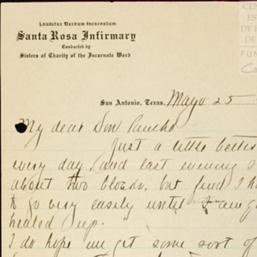 Laudetur Verbum Incarnatum
Santa Rosa Infirmary
Conducted by
Sisters of Charity of the Incarnate Word
San Antonio, Texas, Mayo 25
My dear Don Pancho
Just a little better
every day, and last evening
about two blocks, but find I
to go very easily until I am
healed up.
I do hope we get some sort of